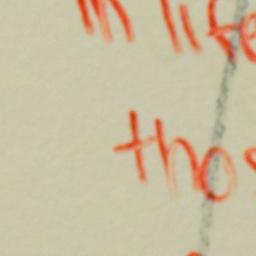 in life
thos